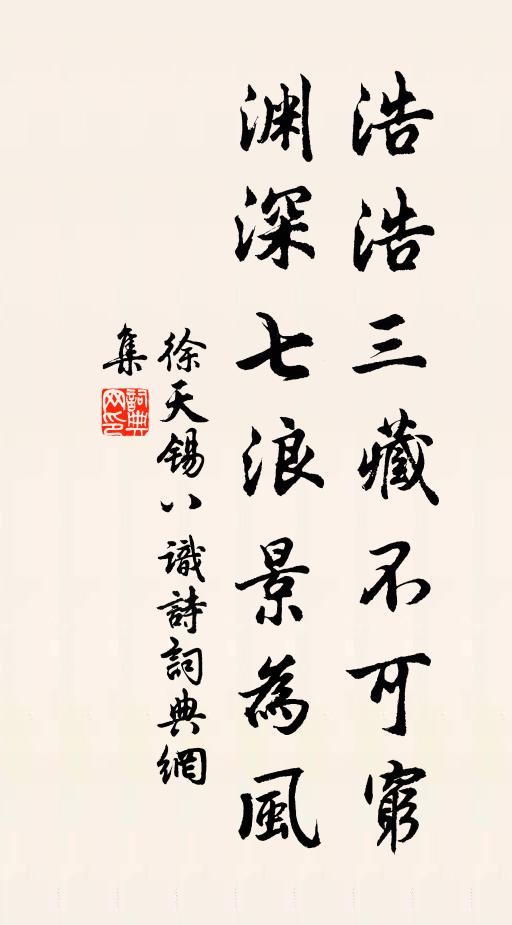 浩浩三藏不可窮
淵深七浪景為風
徐天錫八識詩詞典網
集
詞典
网印